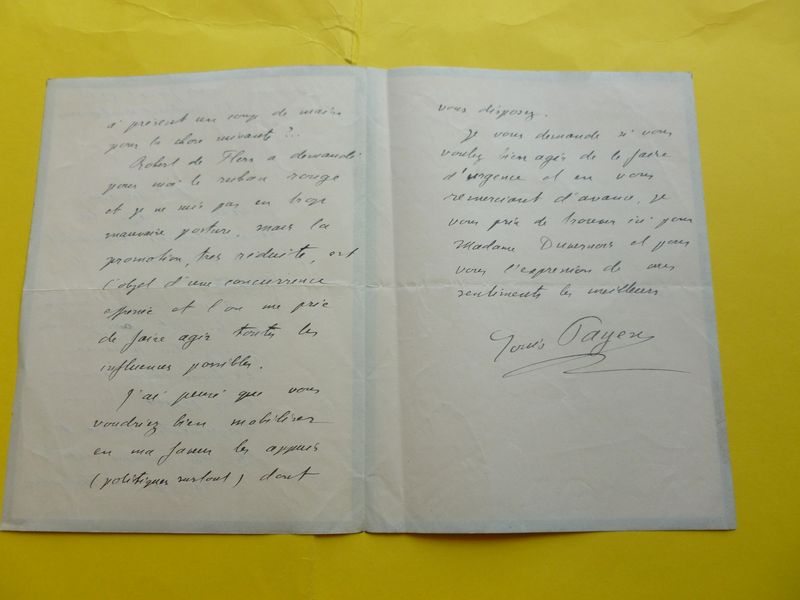 à présent un coup de main
pour la chose suivante ?..
Robert de Flers a demandé
pour moi le ruban rouge
et je ne suis pas en trop
mauvaise posture, mais la
promotion, très réduite, est
l'objet d'une concurrence
effrénée et l'on me prie
de faire agir toutes les
influences possibles.
J'ai pensé que vous
voudriez bien mobiliser
en ma faveur les appuis
(politiques surtout) dont
vous disposez.
Je vous demande si vous
voulez bien agir de le faire
d'urgence et en vous
remerciant d'avance, je
vous prie de trouver ici pour
Madame Duvernois et pour
vous l'expression de mes
sentiments les meilleurs
Louis Payen